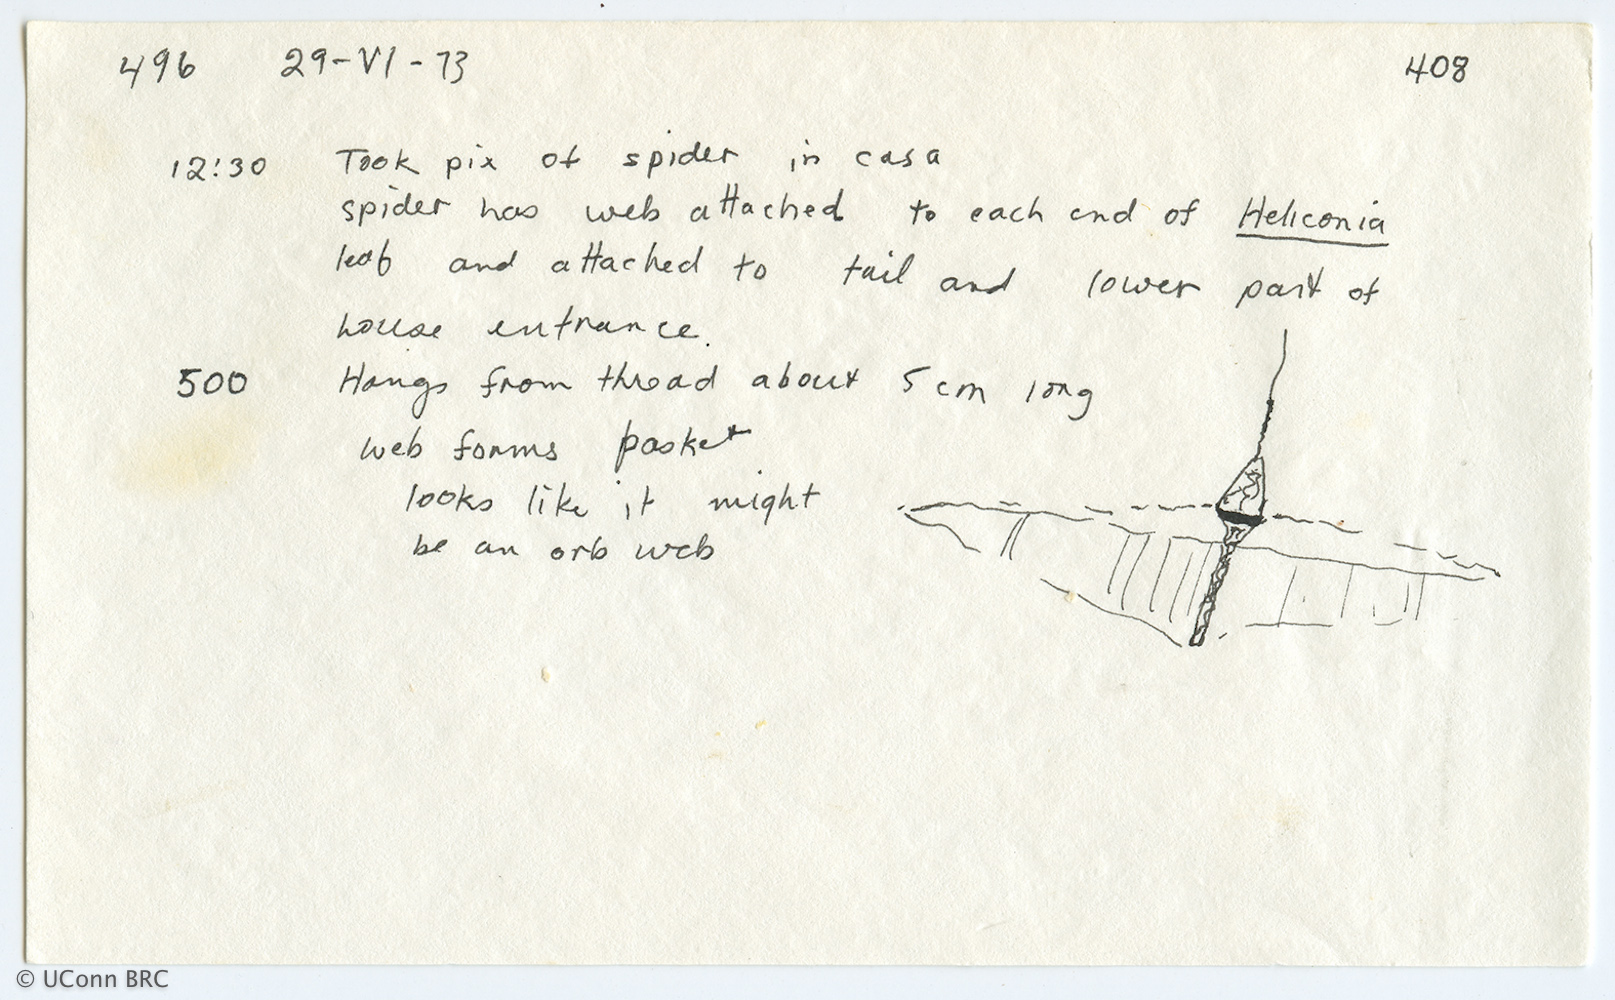 496 29-VI-73 408
12:30 Took pix of spider in casa
spider has web attached to each end of Heliconia
leaf and attached to tail and lower part of
house entrance.
500 Hangs from thread about 5 cm long
web forms basket
looks like it might
be an orb web
© UConn BRC